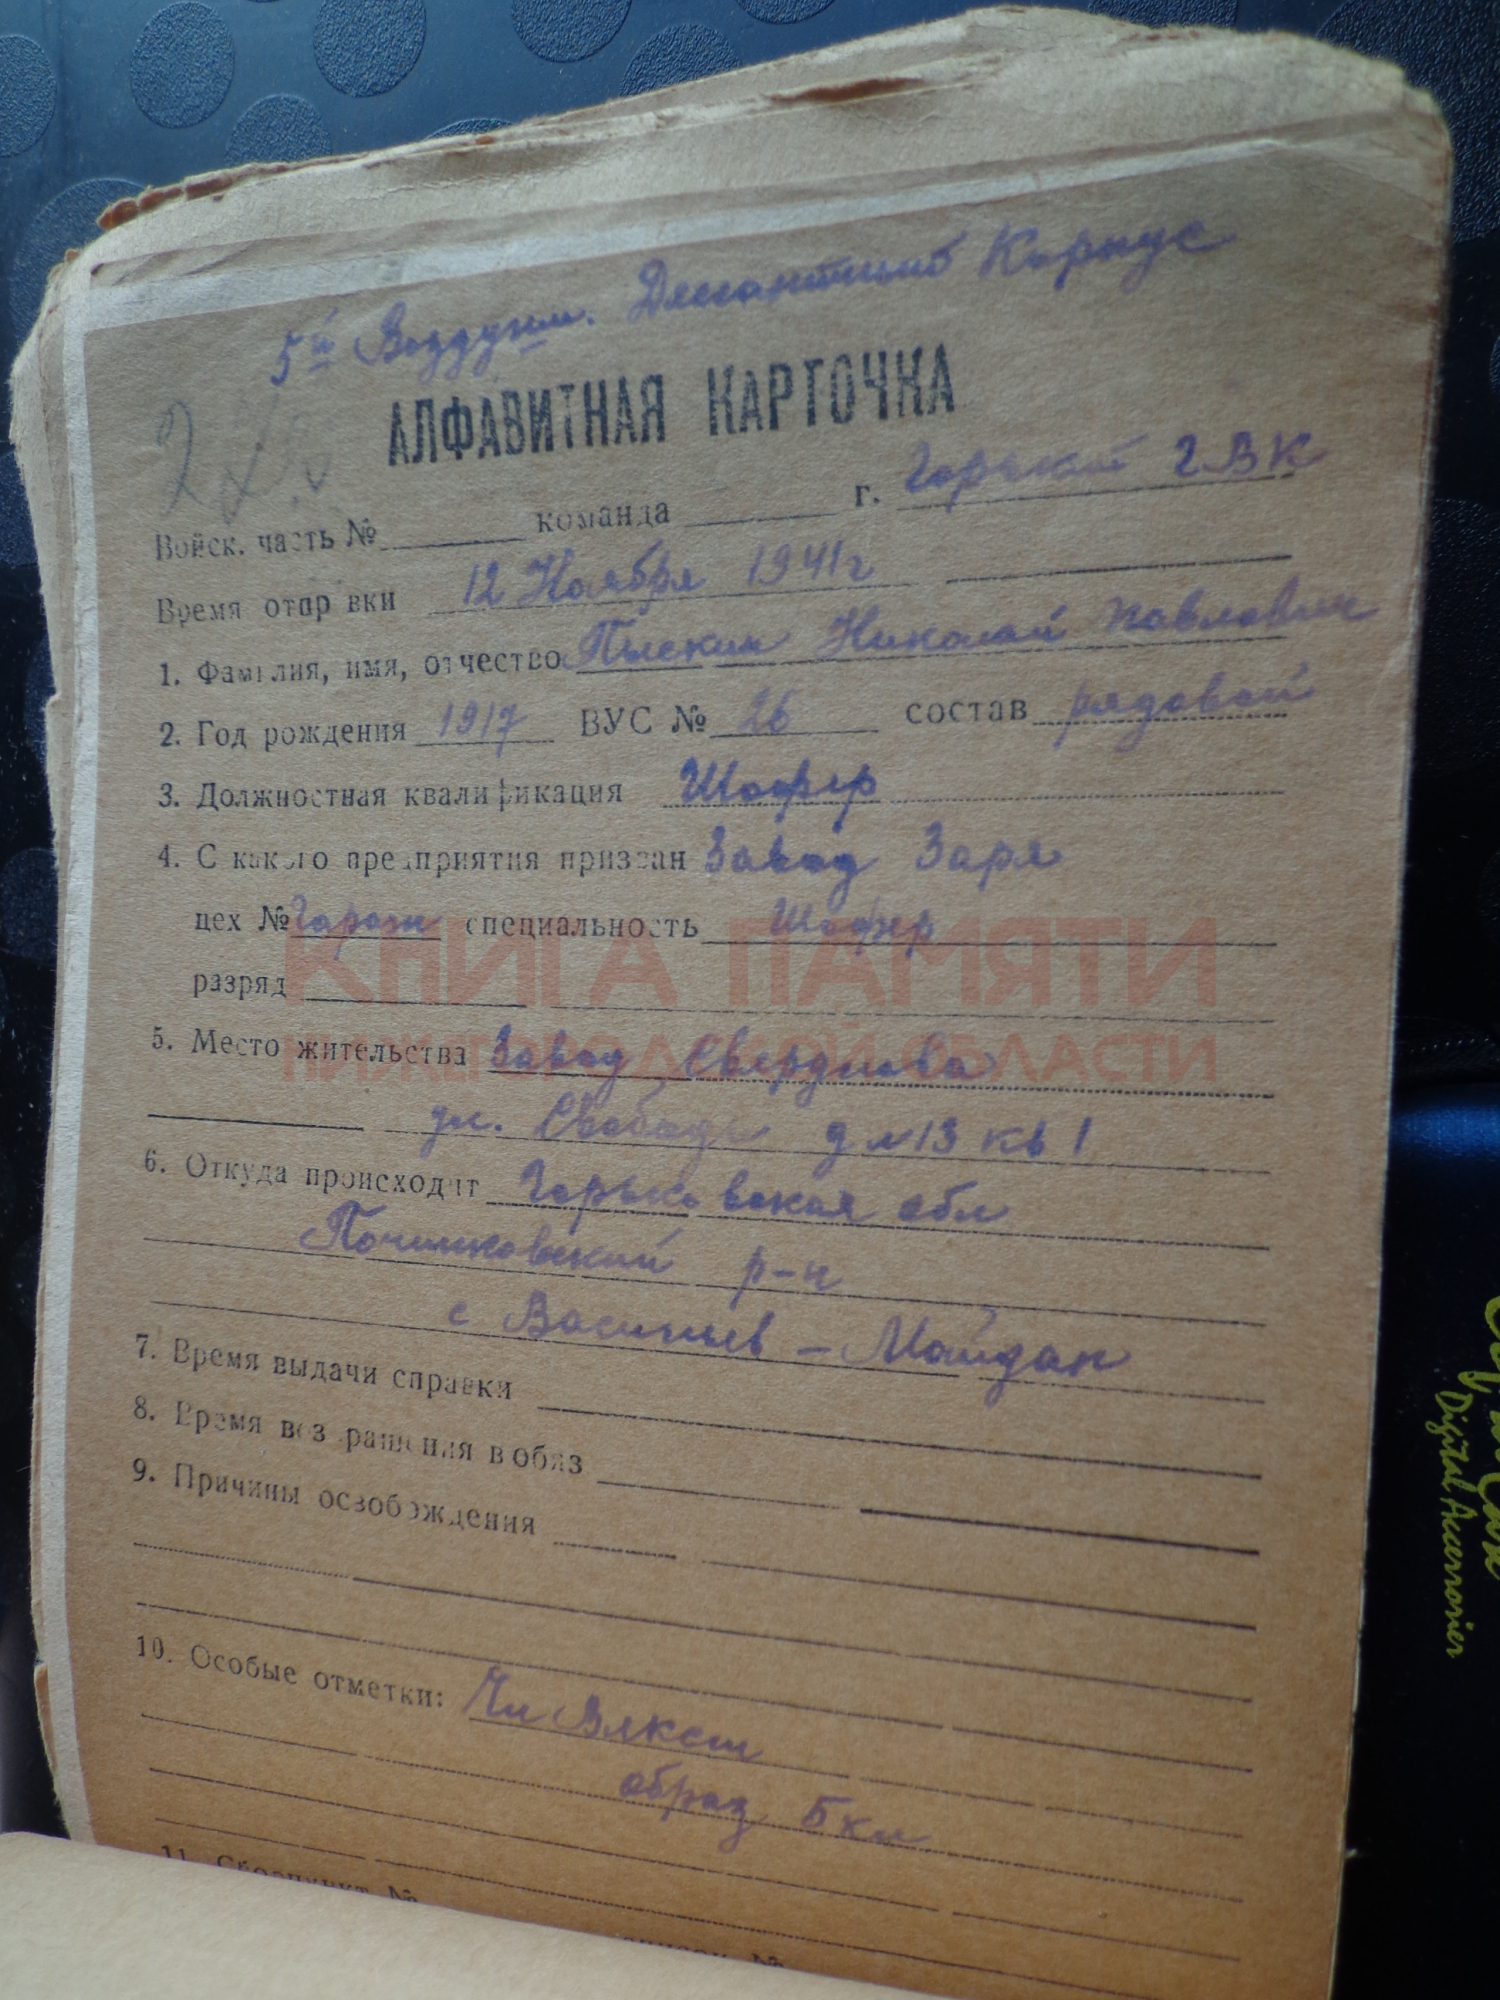 5й Воздушн. Десантный Корпус
АЛФАВИТНАЯ КАРТОЧКА
Войск. часть № команда г. Горький ГВК
Время отправки 12 Ноября 1941г
1. Фамилия, имя, отчество Пыскин Николай Павлович
2. Год рождения 1917 ВУС № 26 состав рядовой
3. Должностная квалификация Шофер
4. С какого предприятия призван Завод Заря
цех № Гараж специальность Шофер
КНИГА ПАМЯТИ
разряд
5. Место жительства Завод Свердлова
НИЖЕГОРОДСКОЙ ОБЛАСТИ
ул. Свободы д №13 кв 1
6. Откуда происходит Горьковская обл
Починковский р-н
с Васильев - Майдан
7. Время выдачи справки
8. Время возвращения в обяз
9. Причины освобождения
10. Особые отметки: Чл Влксм
образ 5 кл
11. Сборпункт №
Digital Accessories